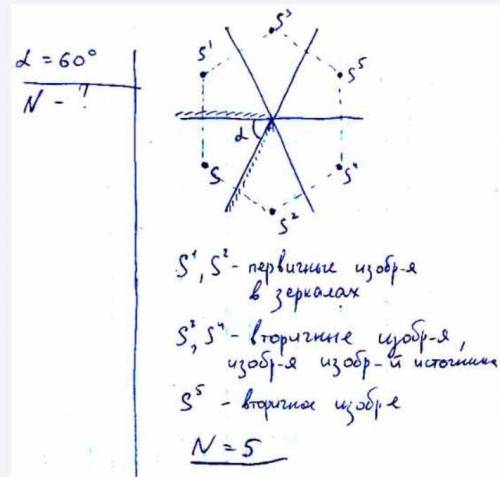 α = 60°
N - ?
S¹
S³
S⁵
α
S
S⁴
S²
S¹, S² - первичные изобр-я
в зеркалах
S³, S⁴ - вторичные изобр-я,
изобр-я изобр-й источника
S⁵ - вторичное изобр-е
N = 5